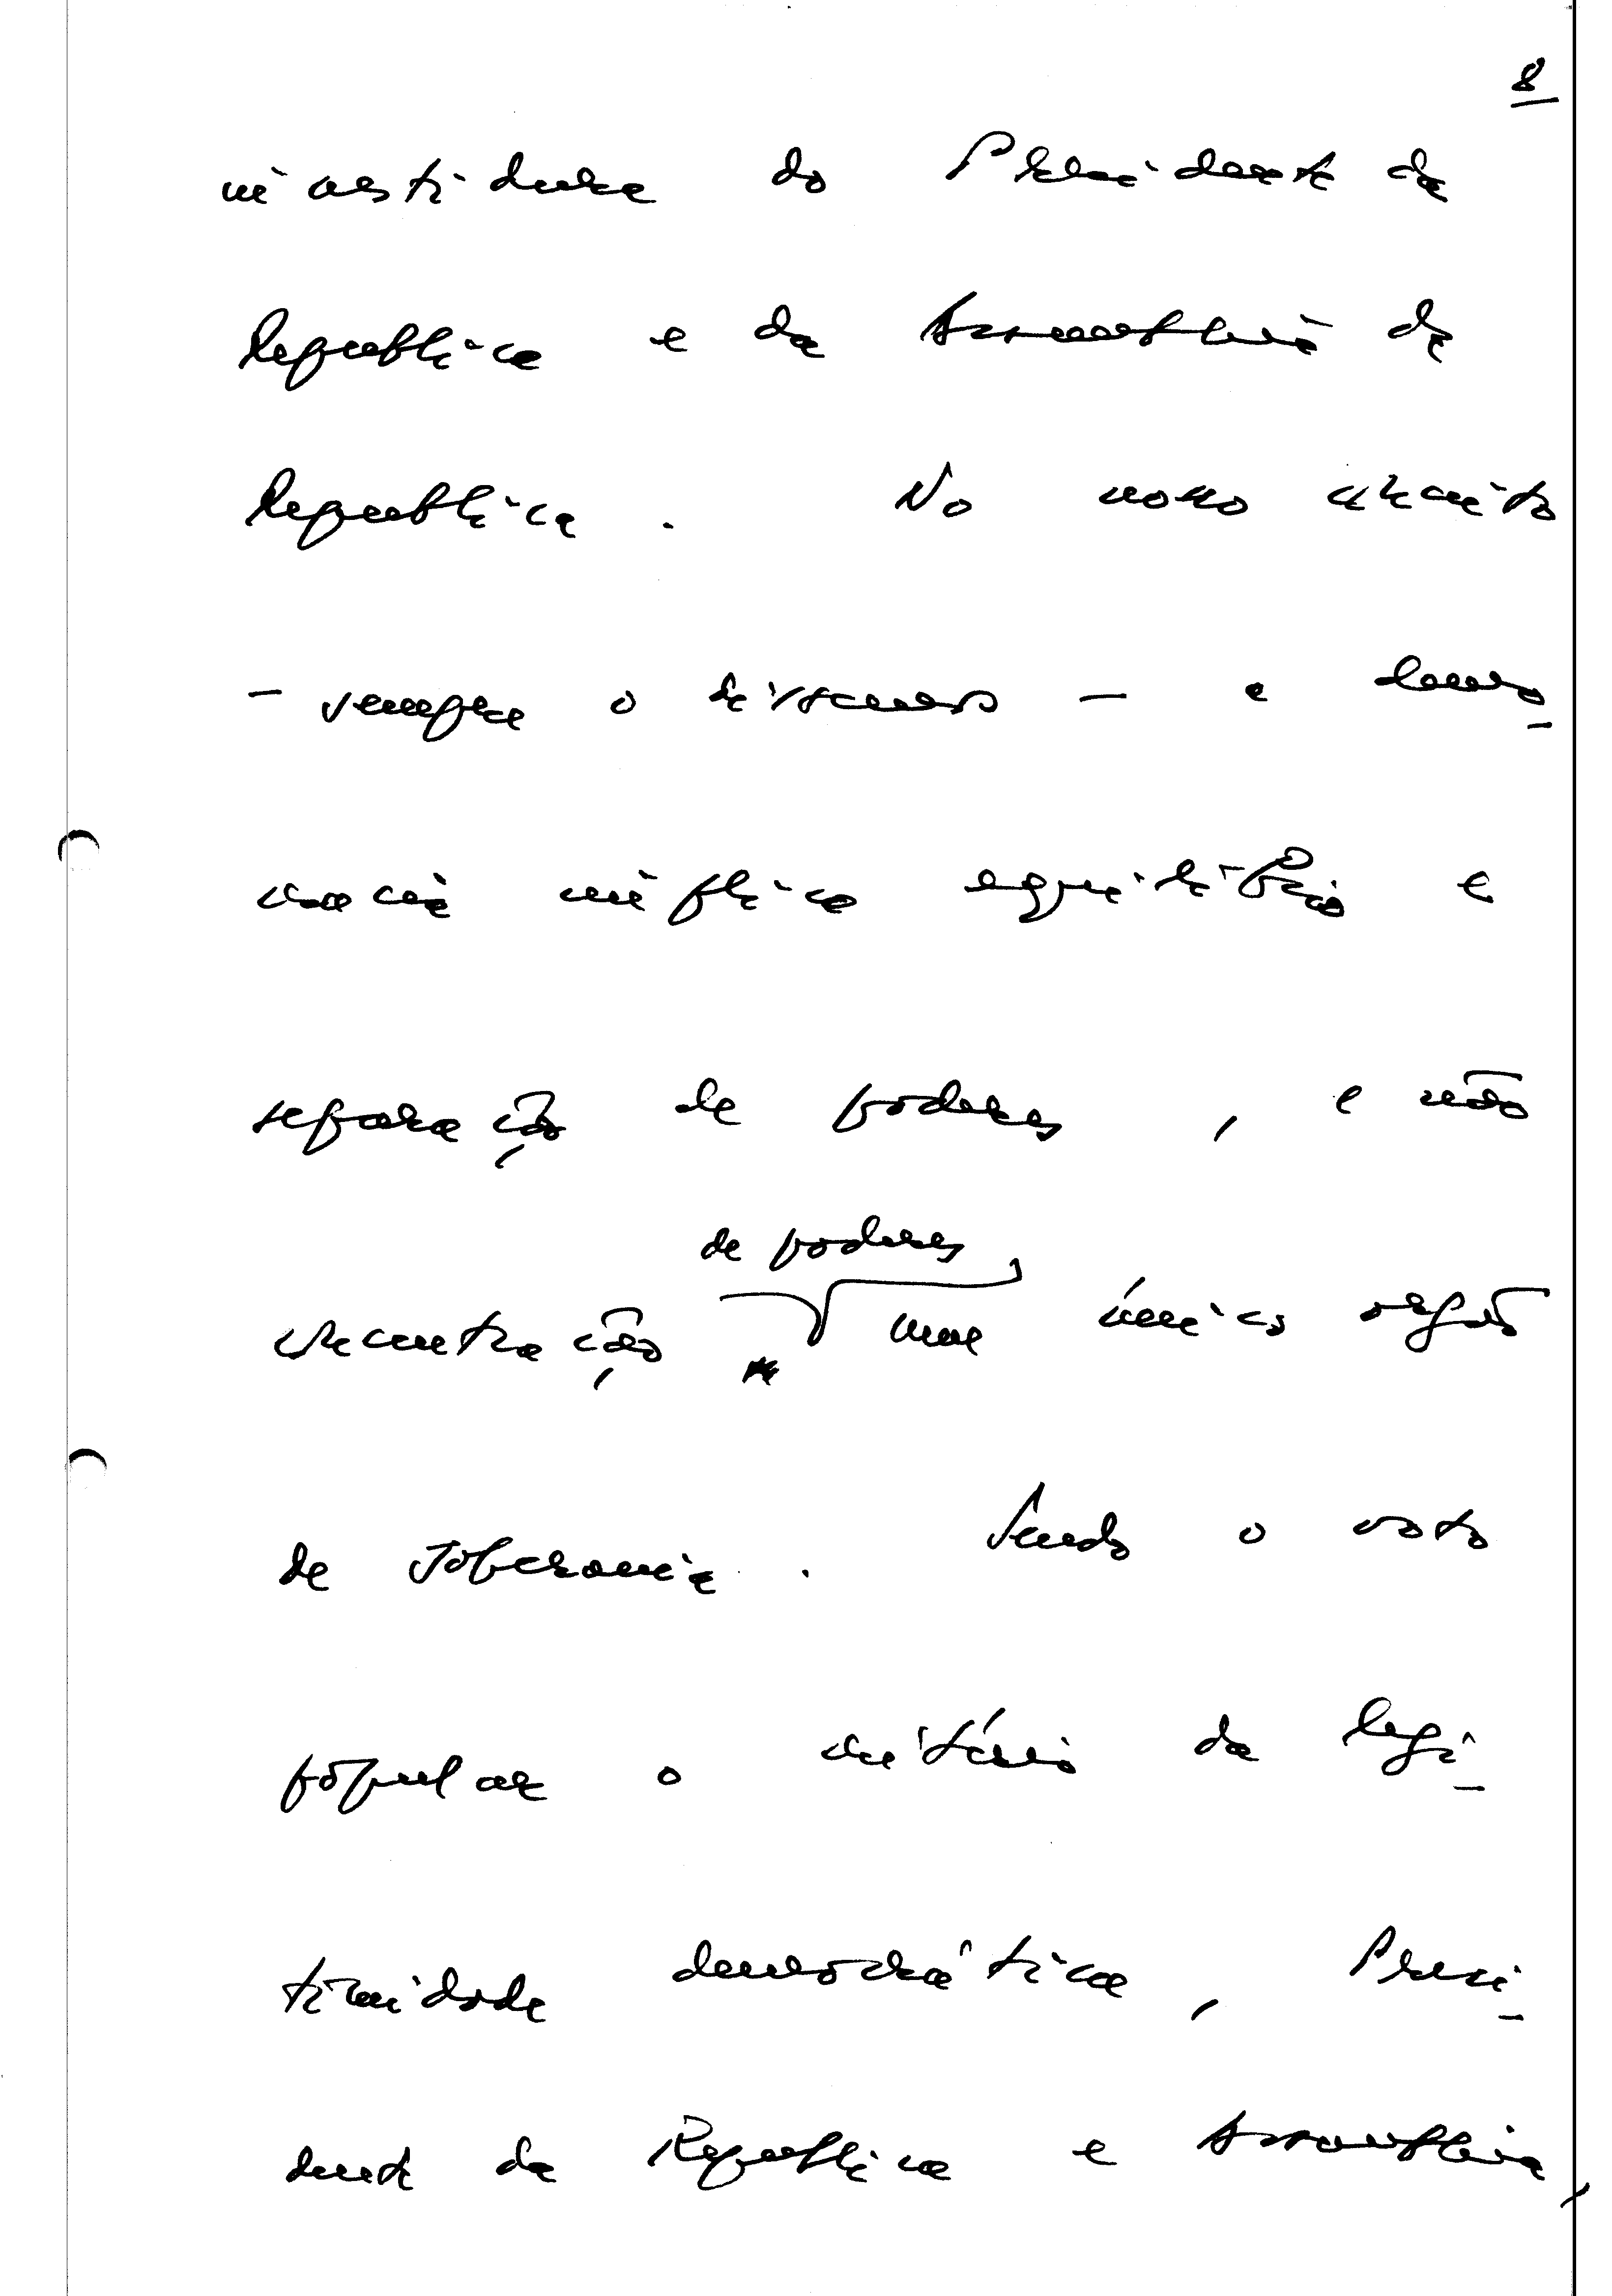 8
investidura do Presidente da
Republica e da Assembleia da
Republica. No nosso conceito
- sempre o dissemos - a demo-
cracia implica equilibrio e
separação de poderes, e não
de poderes
concentração num único orgão
de soberania. Sendo o voto
popular o critério da legi-
timidade democrática, Presi-
dente da Republica e Assembleia